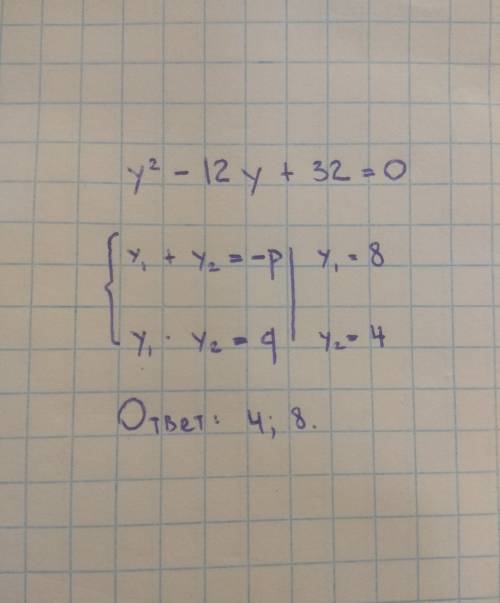 y² - 12y + 32 = 0
{ y₁ + y₂ = -p | y₁ = 8
y₁ · y₂ = q | y₂ = 4
Ответ: 4; 8.